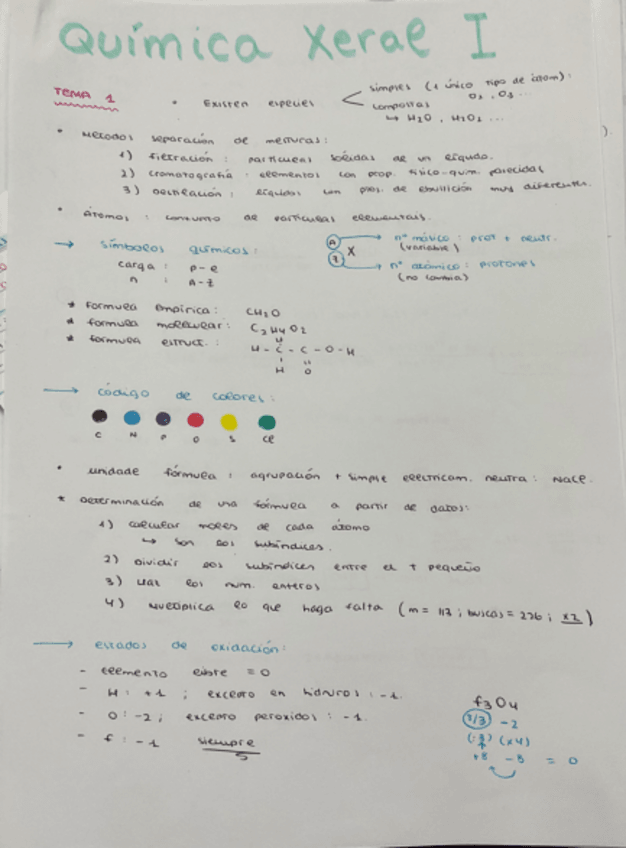 Química Xeral I
TEMA 1
• Existen especies < simples (1 único tipo de átomo):
O2, O3 ...
compostas
↳ H2O, H2O2 ...
• Métodos separación de mesturas:
1) Filtración: partículas sólidas de un líquido.
2) cromatografía: elementos con prop. físico-quím. parecidas
3) Destilación: líquidos con ptos. de ebullición muy diferentes.
• Átomos: conxunto de partículas elementais.
→ Símbolos químicos:
carga: p - e
n: A - Z
A
Z
X
→ nº másico: prot + neutr.
(variable)
→ nº atómico: protones
(no
* Fórmula empírica: CH2O
* fórmula molecular: C2H4O2
* fórmula estruct.:
H
H - C - C - O - H
H O
→ código de colores:
C N P O S Cl
• unidade fórmula: agrupación + simple electricam. neutra: NaCl.
* Determinación de una fórmula a partir de datos:
1) calcular moles de cada átomo
↳ son los subíndices.
2) Dividir los subíndices entre el + pequeño
3) usar los num. enteros
4) Multiplica lo que haga falta (m = 113; buscas = 226; x2)
→ estados de oxidación:
- elemento libre = 0
- H: +1; excepto en hidruros: -1.
- O: -2; excepto peroxidos: -1.
- f: -1 siempre
f3O4
-2
(x4)
+8 -8 = 0